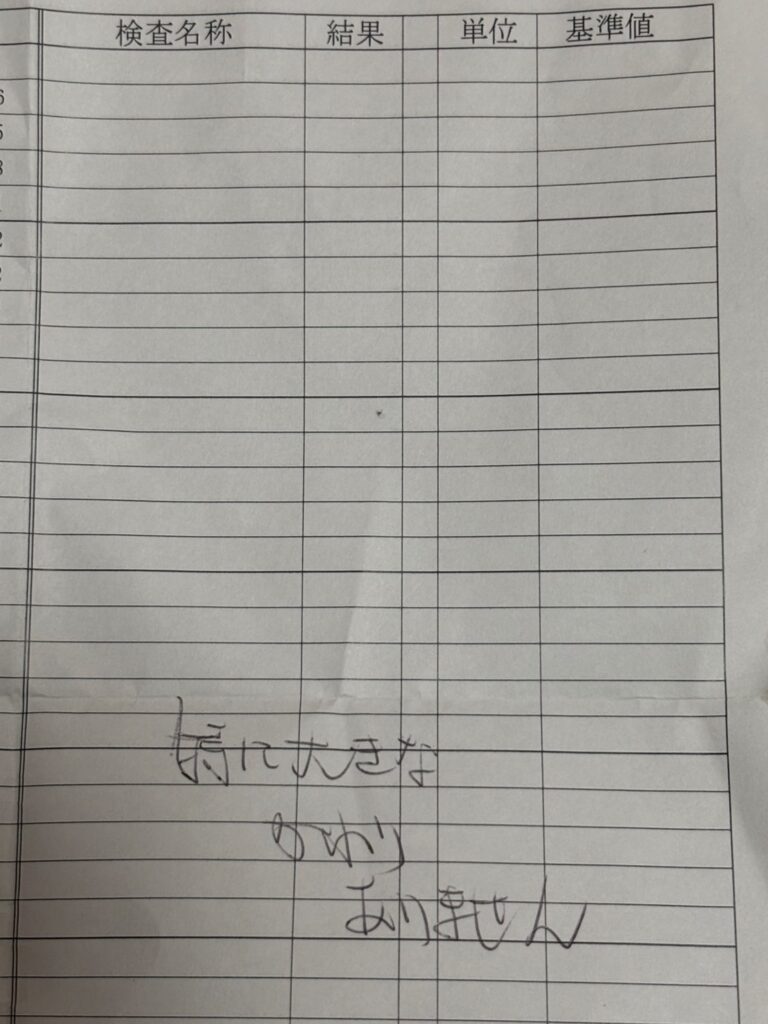 検査名称 結果 単位 基準値
6
5
3
2
2
特に大きな
かわり
ありません